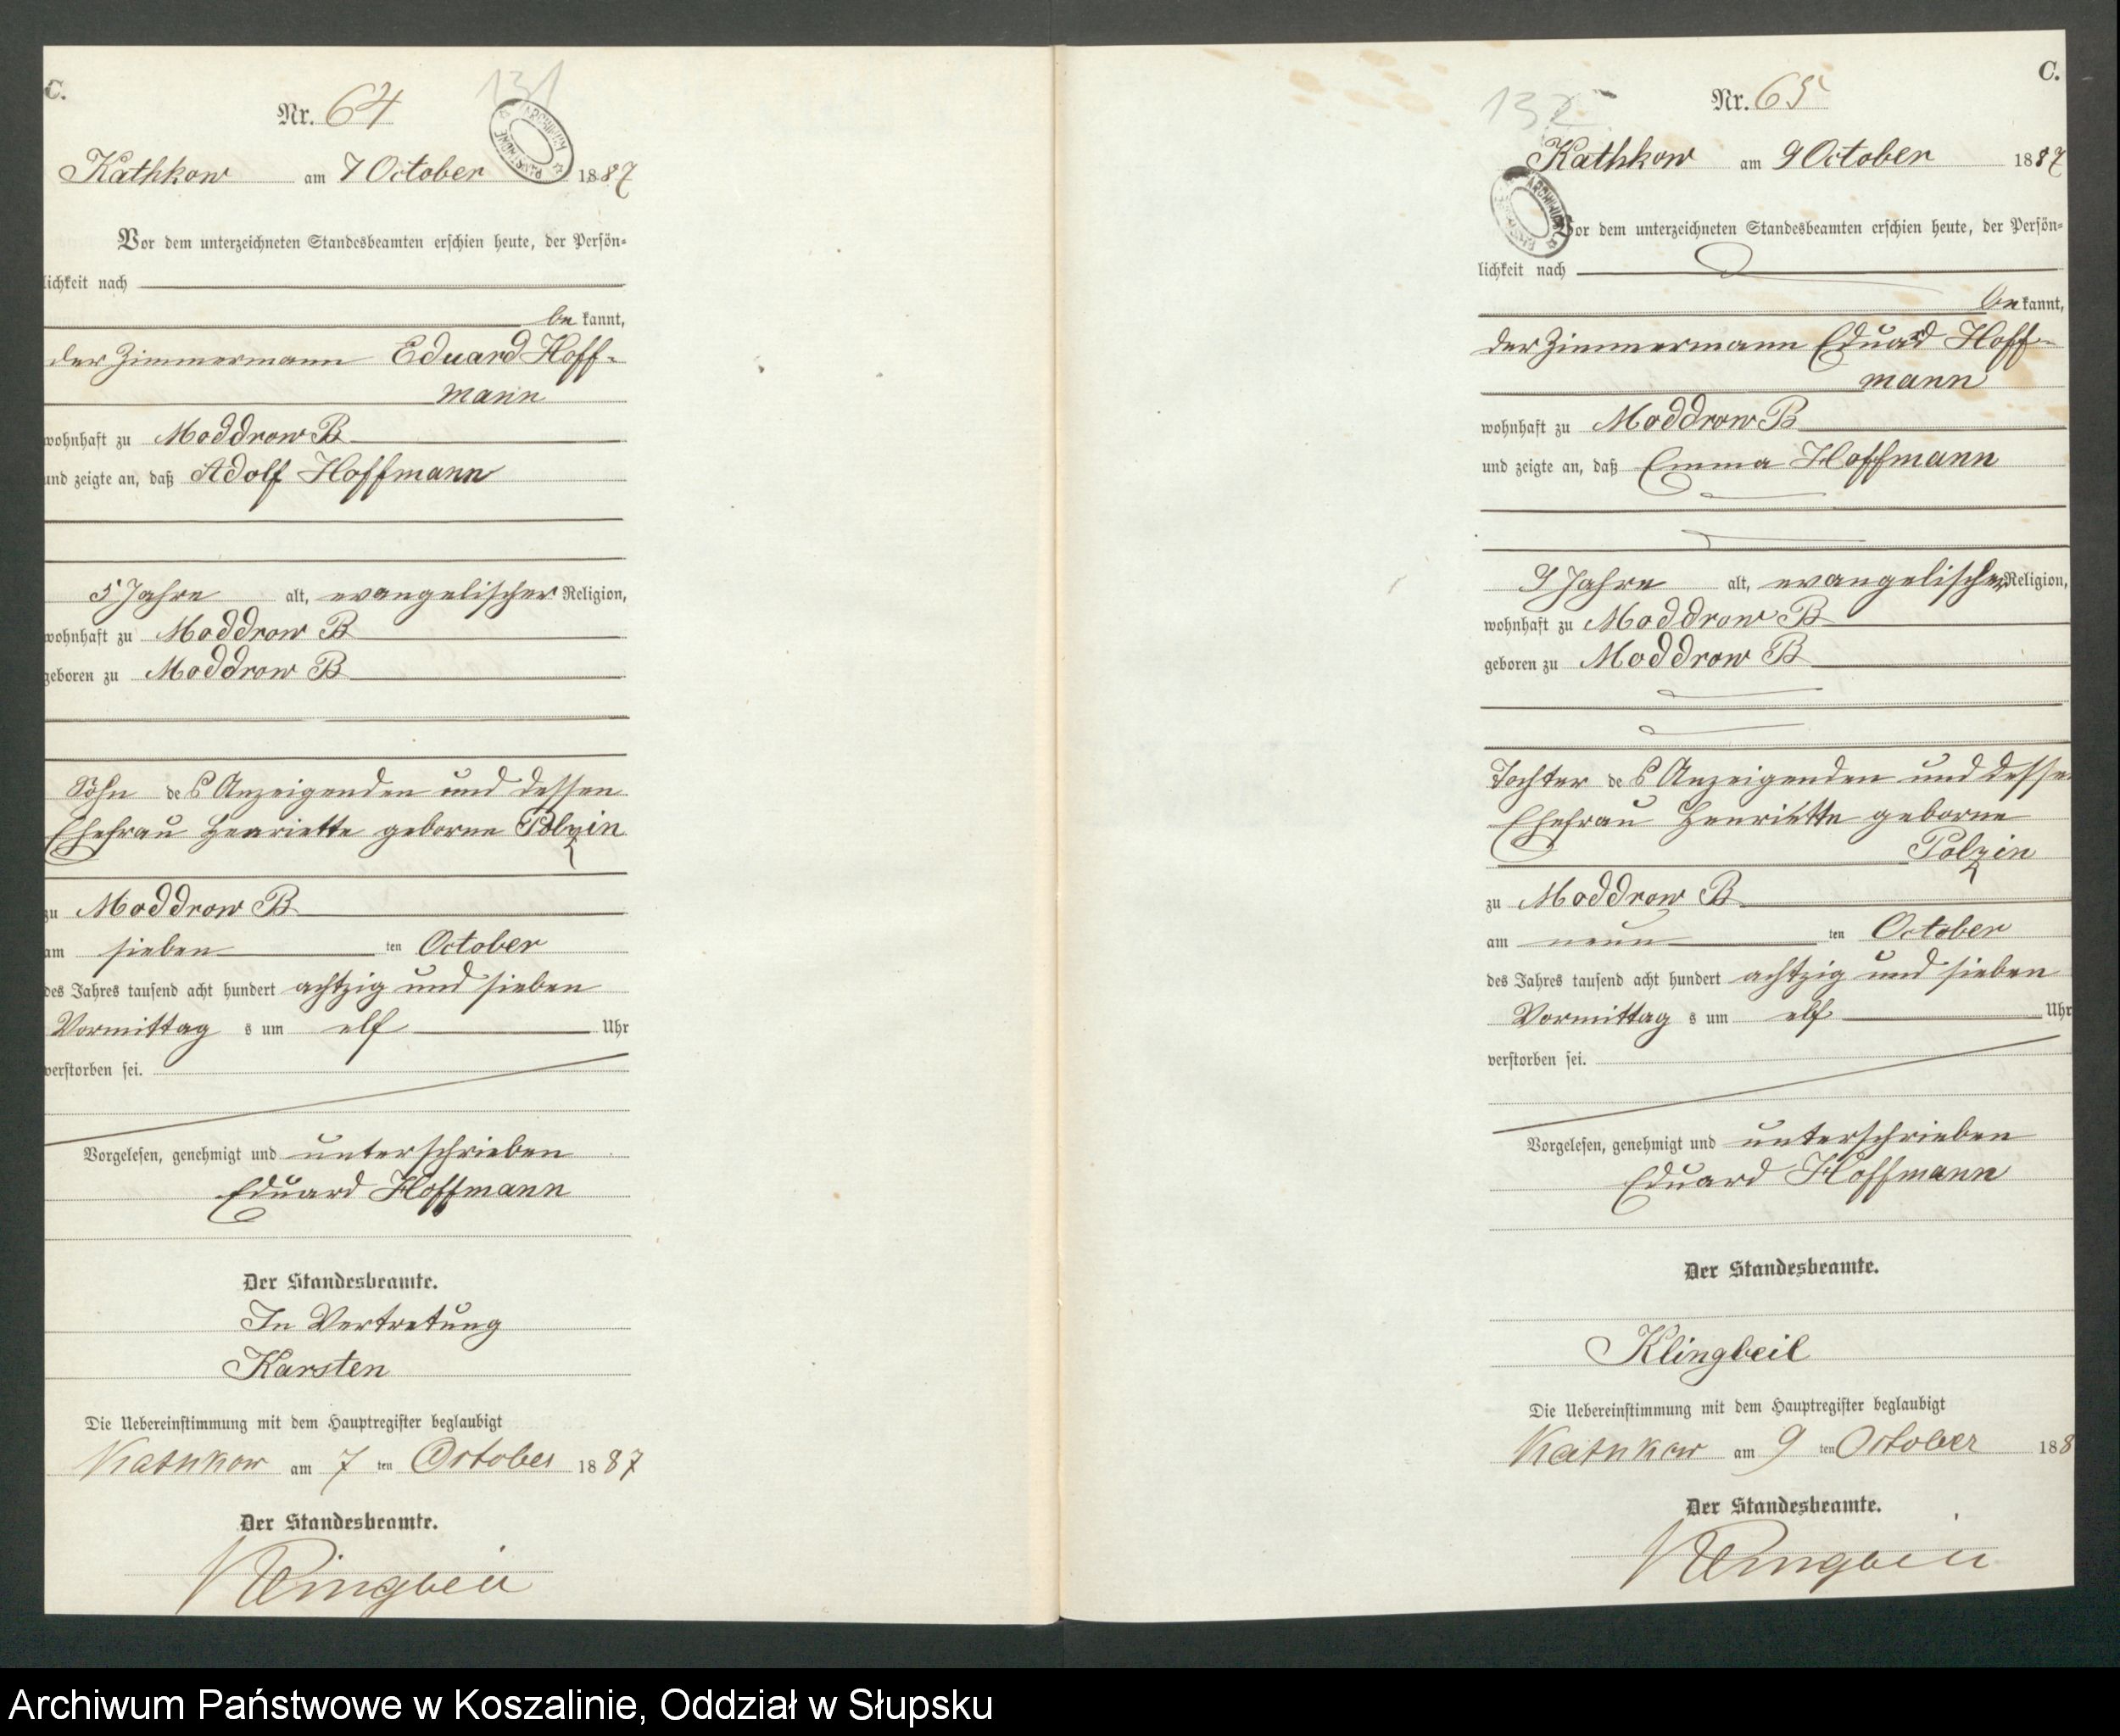 C.
131
Nr. 64
Kathkow am 7 October 1887
Vor dem unterzeichneten Standesbeamten erschien heute, der Persön=
lichkeit nach
be kannt,
der Zimmermann Eduard Hoff-
mann
wohnhaft zu Moddrow B
und zeigte an, daß Adolf Hoffmann
5 Jahre alt, evangelischer Religion,
wohnhaft zu Moddrow B
geboren zu Moddrow B
Sohn des Anzeigenden und dessen
Ehefrau Henriette geborne Polzin
zu Moddrow B
am sieben ten October
des Jahres tausend acht hundert achtzig und sieben
Vormittag s um elf Uhr
verstorben sei.
Vorgelesen, genehmigt und unterschrieben
Eduard Hoffmann
Der Standesbeamte.
In Vertretung
Karsten
Die Uebereinstimmung mit dem Hauptregister beglaubigt
Kathkow am 7 ten October 1887
Der Standesbeamte.
Klingbeil
C.
132
Nr. 65
Kathkow am 9 October 1887
Vor dem unterzeichneten Standesbeamten erschien heute, der Persön=
lichkeit nach
be kannt,
der Zimmermann Eduard Hoff-
mann
wohnhaft zu Moddrow B
und zeigte an, daß Emma Hoffmann
9 Jahre alt, evangelischer Religion,
wohnhaft zu Moddrow B
geboren zu Moddrow B
Tochter des Anzeigenden und desse
Ehefrau Henriette geborne
Polzin
zu Moddrow B
am neun ten October
des Jahres tausend acht hundert achtzig und sieben
Vormittag s um elf Uhr
verstorben sei.
Vorgelesen, genehmigt und unterschrieben
Eduard Hoffmann
Der Standesbeamte.
Klingbeil
Die Uebereinstimmung mit dem Hauptregister beglaubigt
Kathkow am 9 ten October 188
Der Standesbeamte.
Klingbeil
Archiwum Państwowe w Koszalinie, Oddział w Słupsku